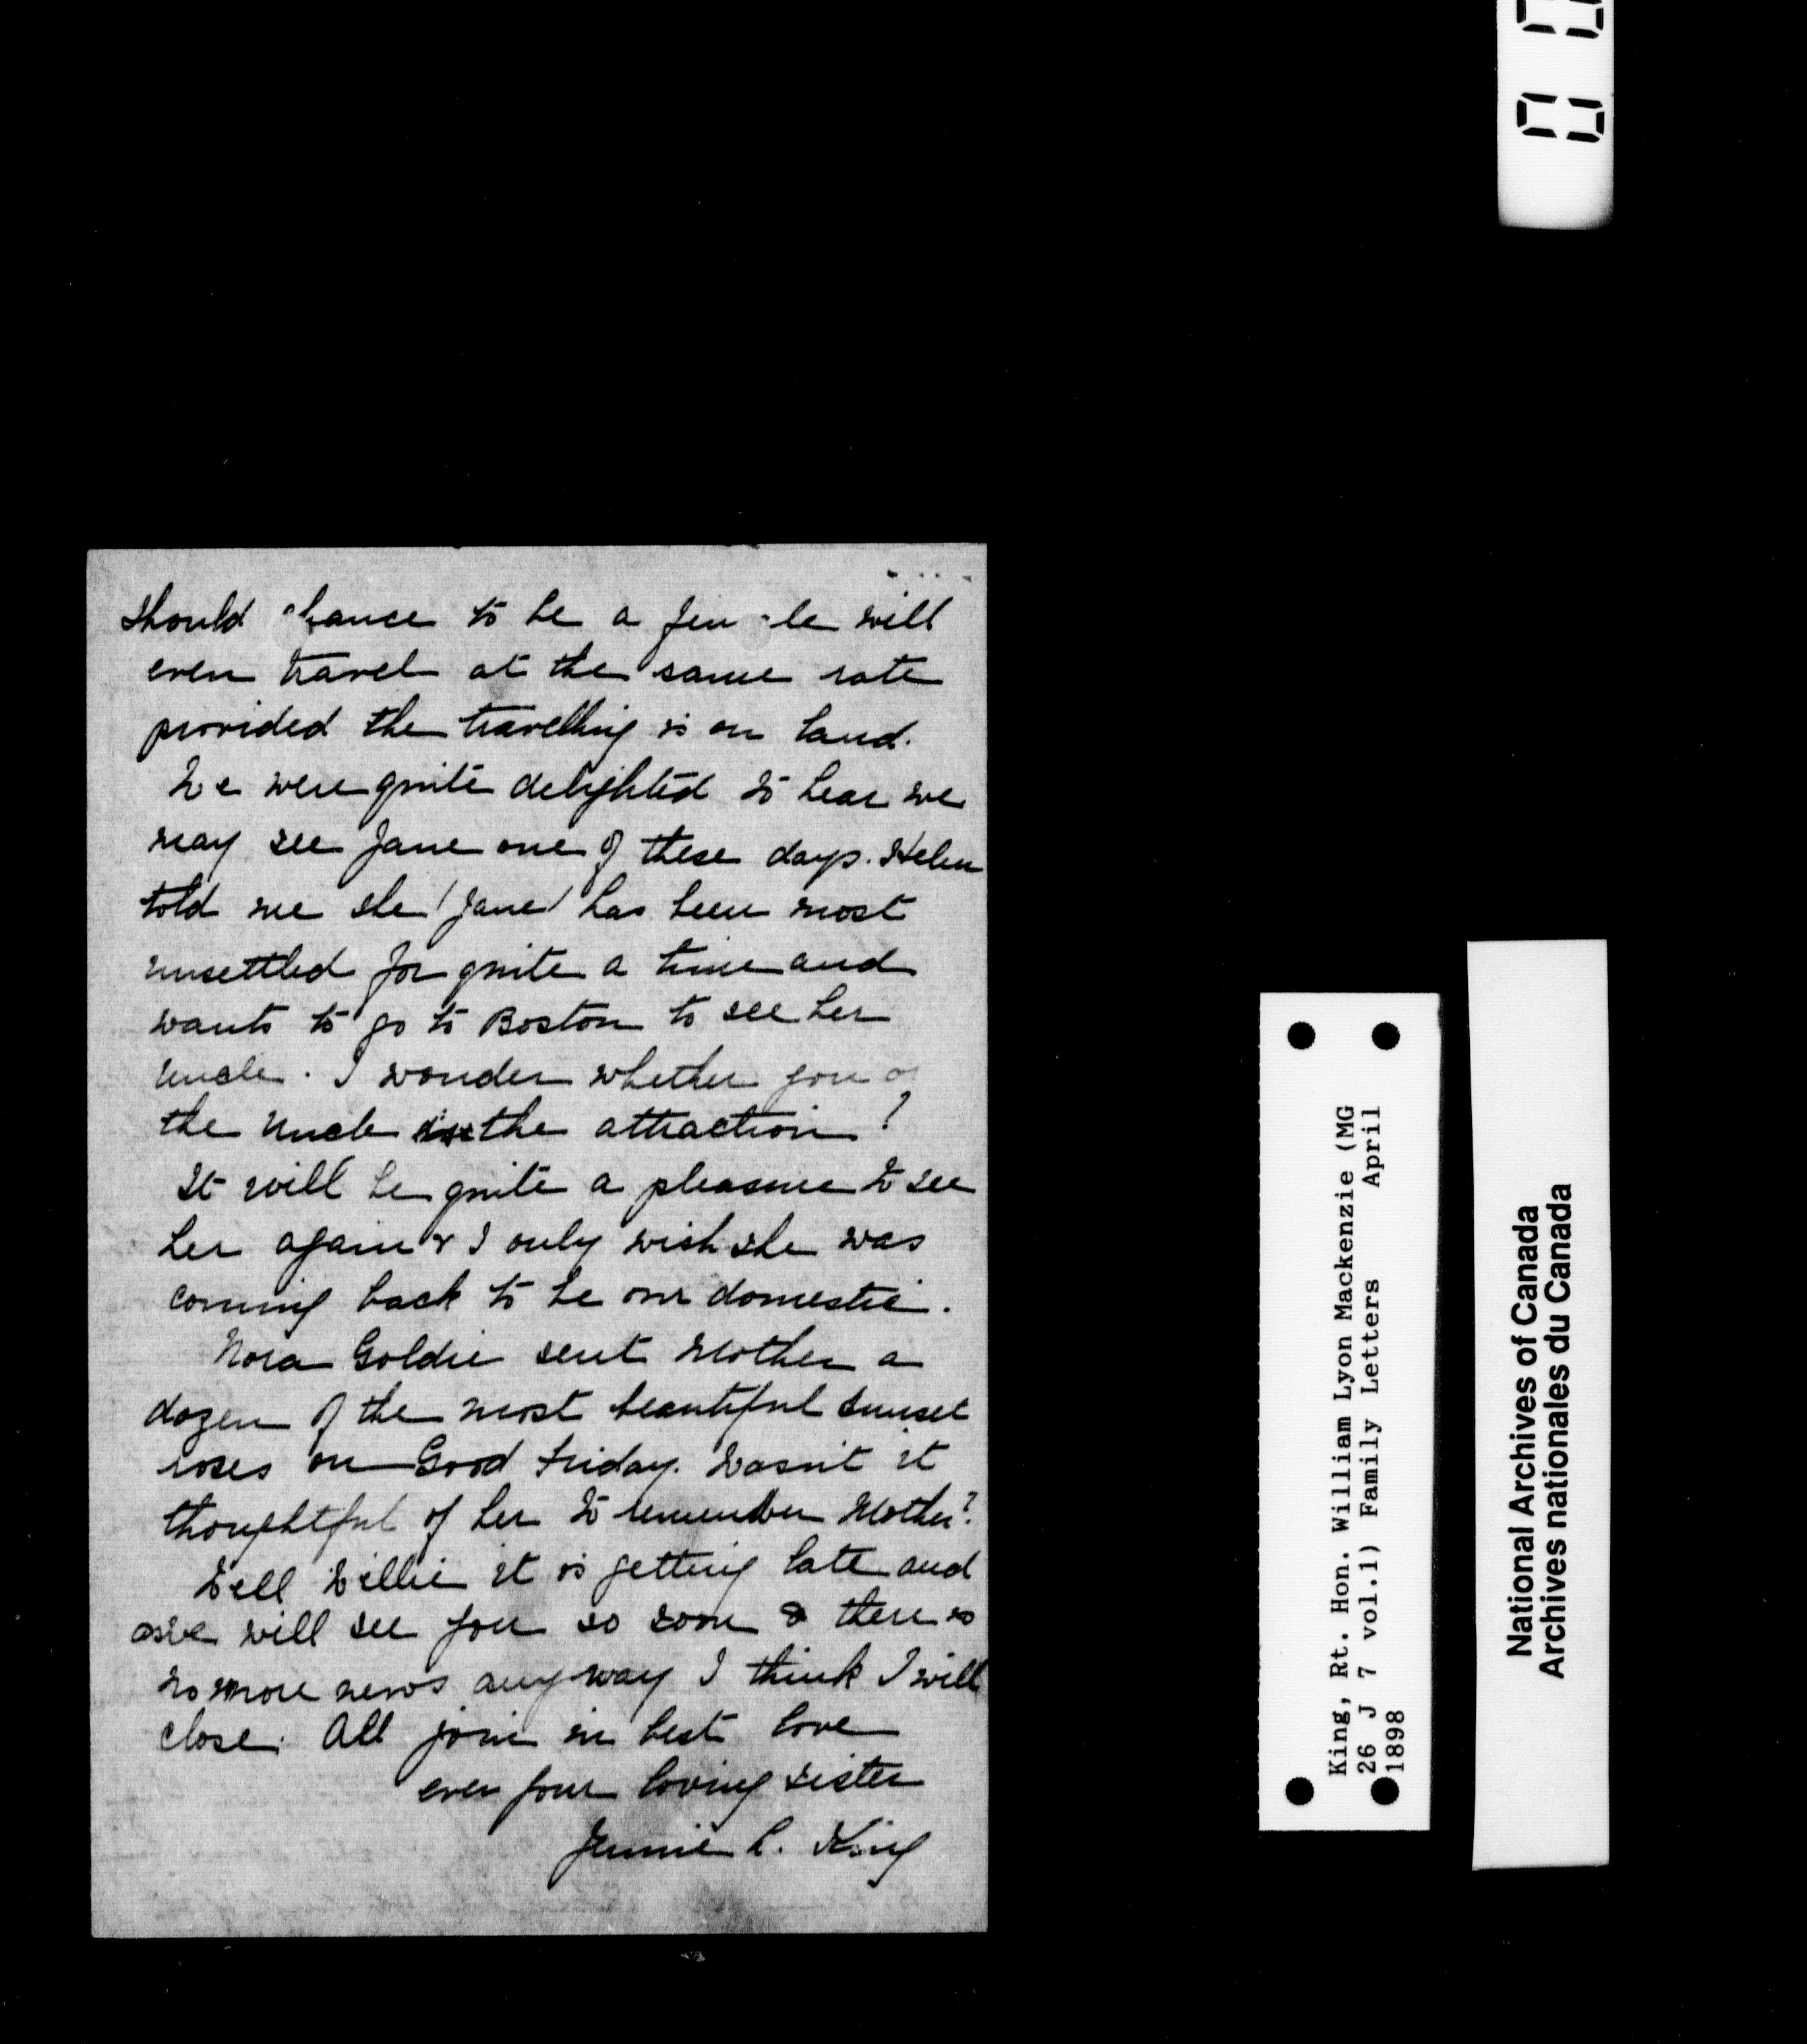 should chance to be a female will
even travel at the same rate
provided the travelling is on land.
We were quite delighted to hear we
may see Jane one of these days. Helen
told me she (Jane) has been most
unsettled for quite a time and
wants to go to Boston to see her
uncle. I wonder whether you or
the Uncle is the attraction?
It will be quite a pleasure to see
her again & I only wish she was
coming back to be our domestic.
Nora Goldie sent Mother a
dozen of the most beautiful sunset
roses on Good Friday. Wasn't it
thoughtful of her to remember Mother?
Well Willie it is getting late and
as we will see you so soon & there is
no more news anyway I think I will
close. All join in best love
ever your loving sister
Jennie L. King
King, Rt. Hon. William Lyon Mackenzie (MG
26 J 7 vol.1) Family Letters April
1898
National Archives of Canada
Archives nationales du Canada